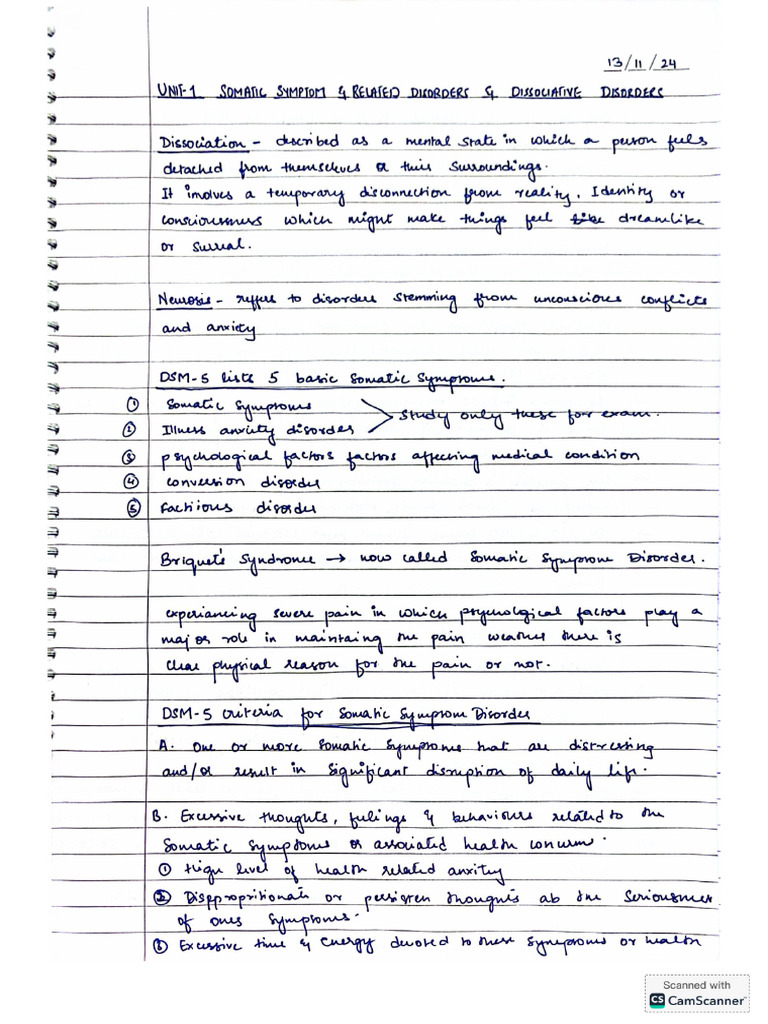 13/11/24
UNIT-1 SOMATIC SYMPTOM & RELATED DISORDERS & DISSOCIATIVE DISORDERS
Dissociation - described as a mental state in which a person feels
detached from themselves or their surroundings.
It involves a temporary disconnection from reality, Identity or
consciousness which might make things feel like dreamlike
or surreal.
Neurosis - reffers to disorders stemming from unconscious conflicts
and anxiety
DSM-5 lists 5 basic Somatic Symptoms.
① Somatic Symptoms
② Illness anxiety disorder
Study only these for exam.
③ psychological factors factors affecting medical condition
④ conversion disorder
⑤ factious disorder
Briquet's Syndrome → now called Somatic Symptom Disorder.
experiancing severe pain in which psychological factors play a
major role in maintaing the pain weather there is
clear physical reason for the pain or not.
DSM-5 criteria for Somatic Symptom Disorder
A. One or more somatic symptoms that are distressing
and/or result in significant disruption of daily life.
B. Excessive thoughts, feelings & behaviours related to the
Somatic symptoms or associated health concern.
① High level of health related anxiety
② Disppropritionate or persisten thoughts ab the seriousness
of ones symptoms.
③ Excessive time & energy devoted to these symptoms or health
Scanned with
CS CamScanner